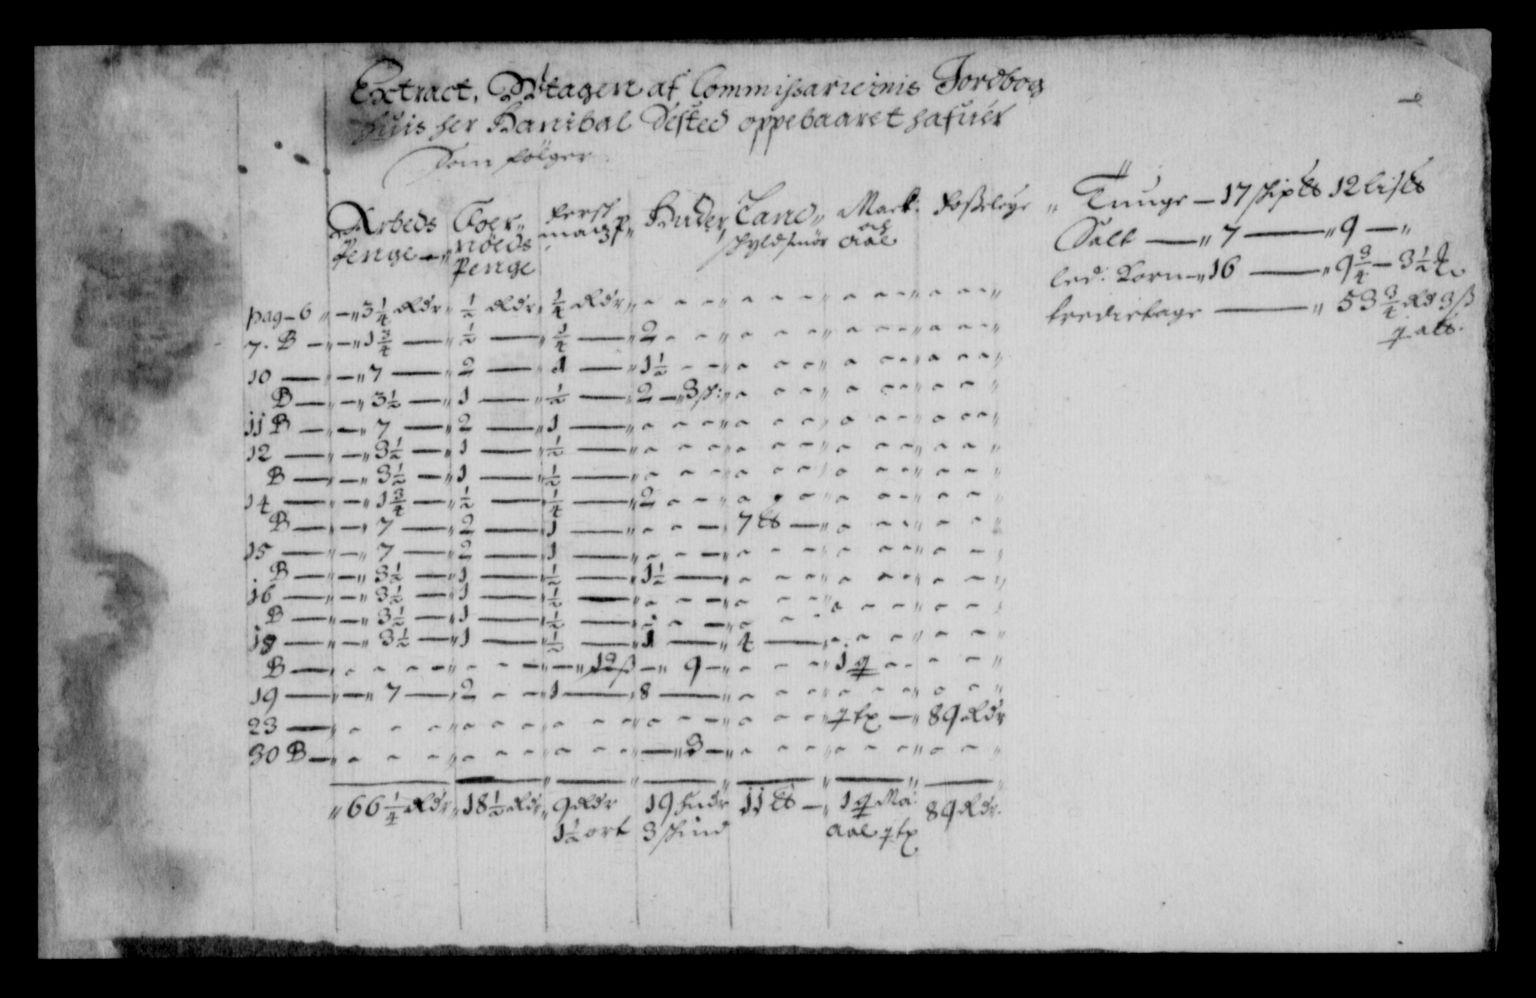 Extract, Wdtagen af Commissariernis Jordbog
huis her Hanibal Sested oppebaaret hafuer
Som følger
Arbeds Penge — Foer nøeds Penge — Huder Land skyldsmør Mack: och Aal
pag – 6 „ – „ 3 1/4 Rdr „ 1/2 Rdr „ 1/4 Rdr „
7. B – „ – „ 1 3/4 — „ 1/2 — „ 1/4 — „ 2
10 — „ – „ 7 — „ 2 — „ 1 — „ 1 1/2
B — „ – „ 3 1/2 — „ 1 — „ 1/2 — „ 2 – „ 3 sk:
11 B — „ – „ 7 — „ 2 — „ 1 —
12 — „ – „ 3 1/2 — „ 1 — „ 1/2 —
B — „ – „ 3 1/2 — „ 1 — „ 1/2 —
14 — „ – „ 1 3/4 — „ 1/2 — „ 1/4 — „ 2
B — „ – „ 7 — „ 2 — „ 1 — „ 7 ℔ —
15 — „ – „ 7 — „ 2 — „ 1 —
B — „ – „ 3 1/2 — „ 1 — „ 1/2 — „ 1 1/2 —
16 — „ – „ 3 1/2 — „ 1 — „ 1/2 —
B — „ – „ 3 1/2 — „ 1 — „ 1/2 —
18 — „ – „ 3 1/2 — „ 1 — „ 1/2 — „ 1 — „ 4 —
B — „ – „ 12 ß – „ 9 – „ 1
19 — „ – „ 7 — „ 2 „ 1 — „ 8 —
23 — „ 89 Rdr
30 B – „ – „ 3 –
„ 66 1/4 Rdr „ 18 1/2 Rdr „ 9 Rdr „ 19 hudr „ 11 ℔ – 89 Rdr.
1 1/2 ort 3 skind Aal
„ Tiunge – 17 skip℔ 12 lis℔
Salt — „ 7 — „ 9 – „
led: Korn – „ 16 — „ 9 3/4 – 3 1/2
Leedietage — „ 53 3/4 Rd 3 ß
alb.